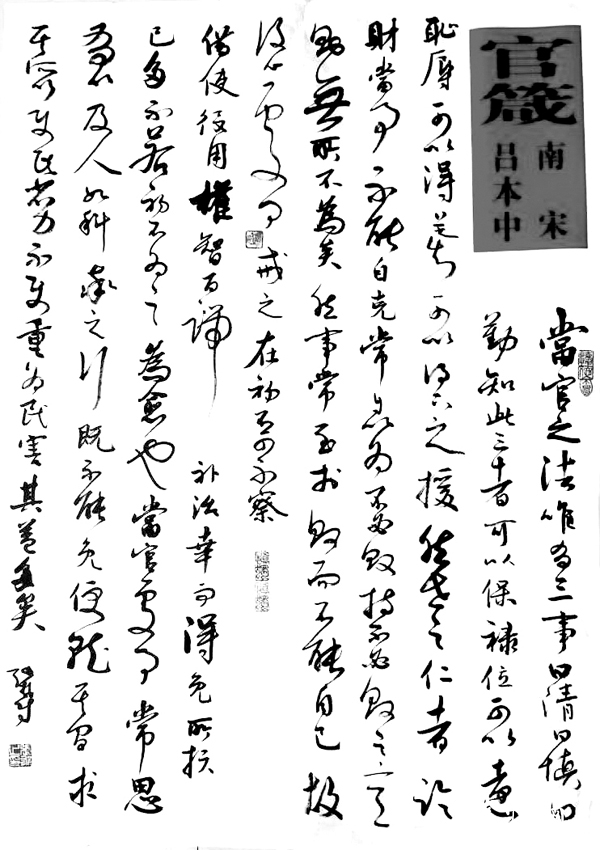 官箴
南宋
吕本中
當官之法唯有三事曰清曰慎曰
勤知此三者可以保禄位可以遠
恥辱可以得上之知可以得下之援然世之仁者臨
財當事不能自克常自以為不必敗持不必敗之意
則無所不為矣然事常至於敗而不能自已故
設心處事戒之在初不可不察
借使役用權智百端补治幸而得免所損
已多不若初不為之為愈也當官處事常思
有以及人如科率之行既不能免便就其間求
其所以使民省力不使重為民害其益多矣